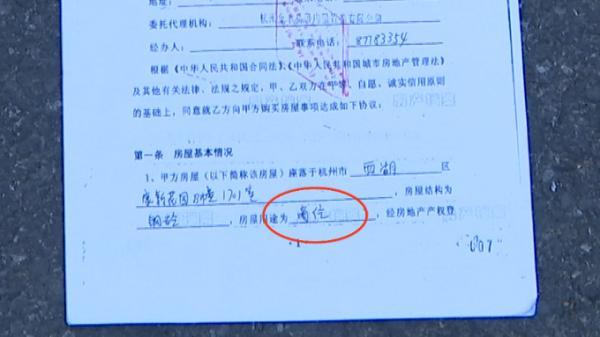 委托代理机构:
经办人: 联系电话: 87783354
根据《中华人民共和国合同法》、《中华人民共和国城市房地产管理法》
及其他有关法律、法规之规定,甲、乙双方在平等、自愿、诚实信用原则
的基础上,同意就乙方向甲方购买房屋事项达成如下协议:
第一条 房屋基本情况
1、甲方房屋(以下简称该房屋)座落于杭州市 西湖 区
花园 1701室 ,房屋结构为
钢砼 ,房屋用途为 ,经房地产产权登
·1·
007